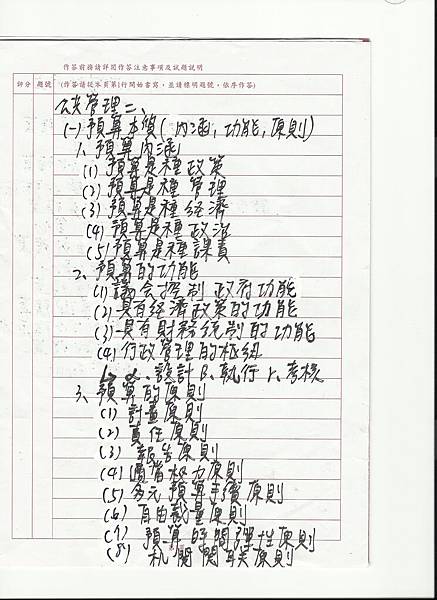 作答前務請詳閱作答注意事項及試題說明
評分 題號 (作答請從本頁第1行開始書寫，並請標明題號，依序作答)
公共管理二、
(一)預算本質(內涵,功能,原則)
1、預算內涵
(1)預算是種政策
(2)預算是種管理
(3)預算是種經濟
(4)預算是種政治
(5)預算是種課責
2、預算的功能
(1)議會控制政府功能
(2)具有經濟政策的功能
(3)具有財務統制的功能
(4)行政管理的樞紐
設計 B、執行 r、考核
3、預算的原則
(1)計畫原則
(2)責任原則
(3)報告原則
(4)適當權力原則
(5)多元預算手續原則
(6)自由裁量原則
(7)預算時間彈性原則
(8)機關關聯原則